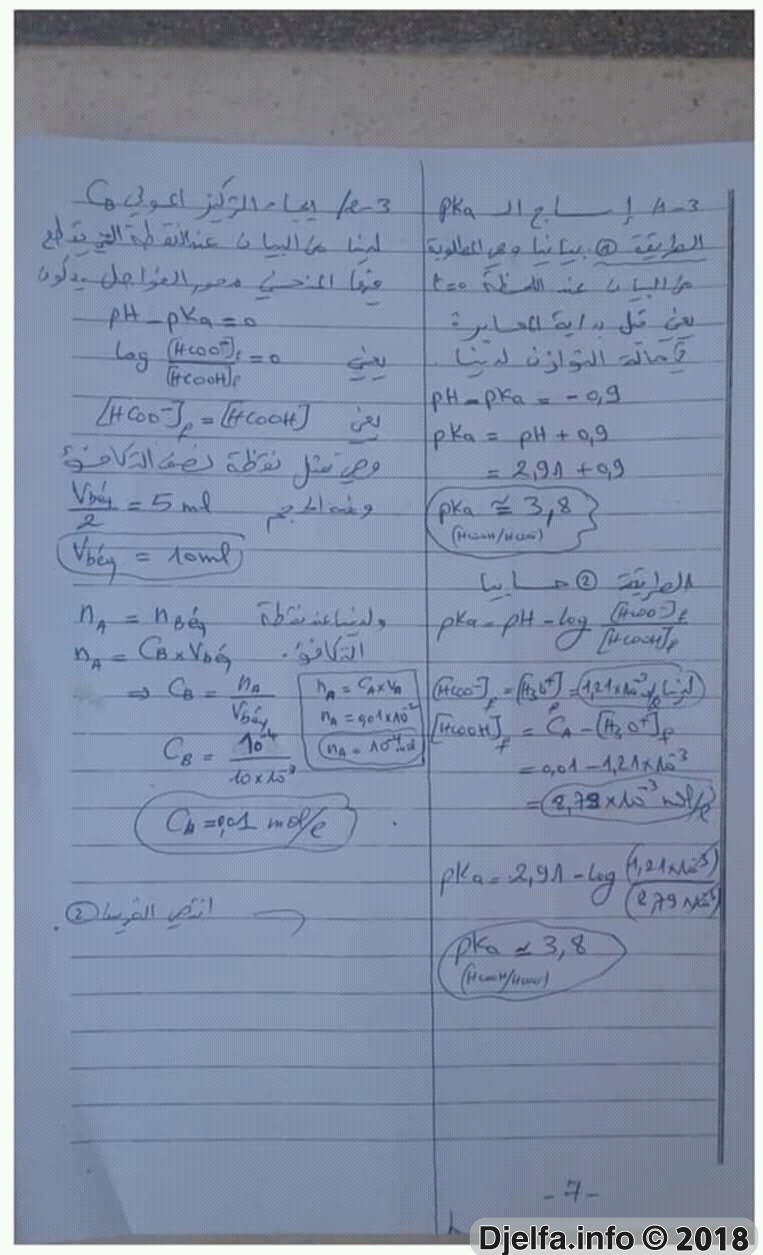 3-A/ إستنتاج الـ pKa
الطريقة ① بيانيا وهي المطلوبة
من البيان عند اللحظة t=0
يعني قبل بداية المعايرة
في حالة التوازن لدينا
pH - pKa = -0,9
pKa = pH + 0,9
= 2,91 + 0,9
pKa ≅ 3,8
(HCOOH/HCOO⁻)
الطريقة ② حسابيا
pKa = pH - log [HCOO⁻]f / [HCOOH]f
لدينا [HCOO⁻]f = [H₃O⁺]f = 1,21×10⁻³ mol/l
[HCOOH]f = CA - [H₃O⁺]f
= 0,01 - 1,21×10⁻³
= 8,79×10⁻³ mol/l
pKa = 2,91 - log (1,21×10⁻³) / (8,79×10⁻³)
pKa ≃ 3,8
(HCOOH/HCOO⁻)
3-e/ إيجاد التركيز المولي CB
لدينا من البيان عند النقطة التي يقطع
فيها المنحنى محور الفواصل يكون
pH - pKa = 0
يعني log [HCOO⁻]f / [HCOOH]f = 0
يعني [HCOO⁻]f = [HCOOH]
وهي تمثل نقطة نصف التكافؤ
ومنه الحجم Vbéq / 2 = 5 ml
Vbéq = 10 ml
ولدينا عند نقطة nA = nBéq
التكافؤ. nA = CB × Vbéq
⇒ CB = nA / Vbéq
nA = CA × VA
nA = 0,01 × 10⁻²
nA = 10⁻⁴ mol
CB = 10⁻⁴ / 10×10⁻³
CB = 0,01 mol/l
انتهى التمرين ②.
-7-
Djelfa.info © 2018